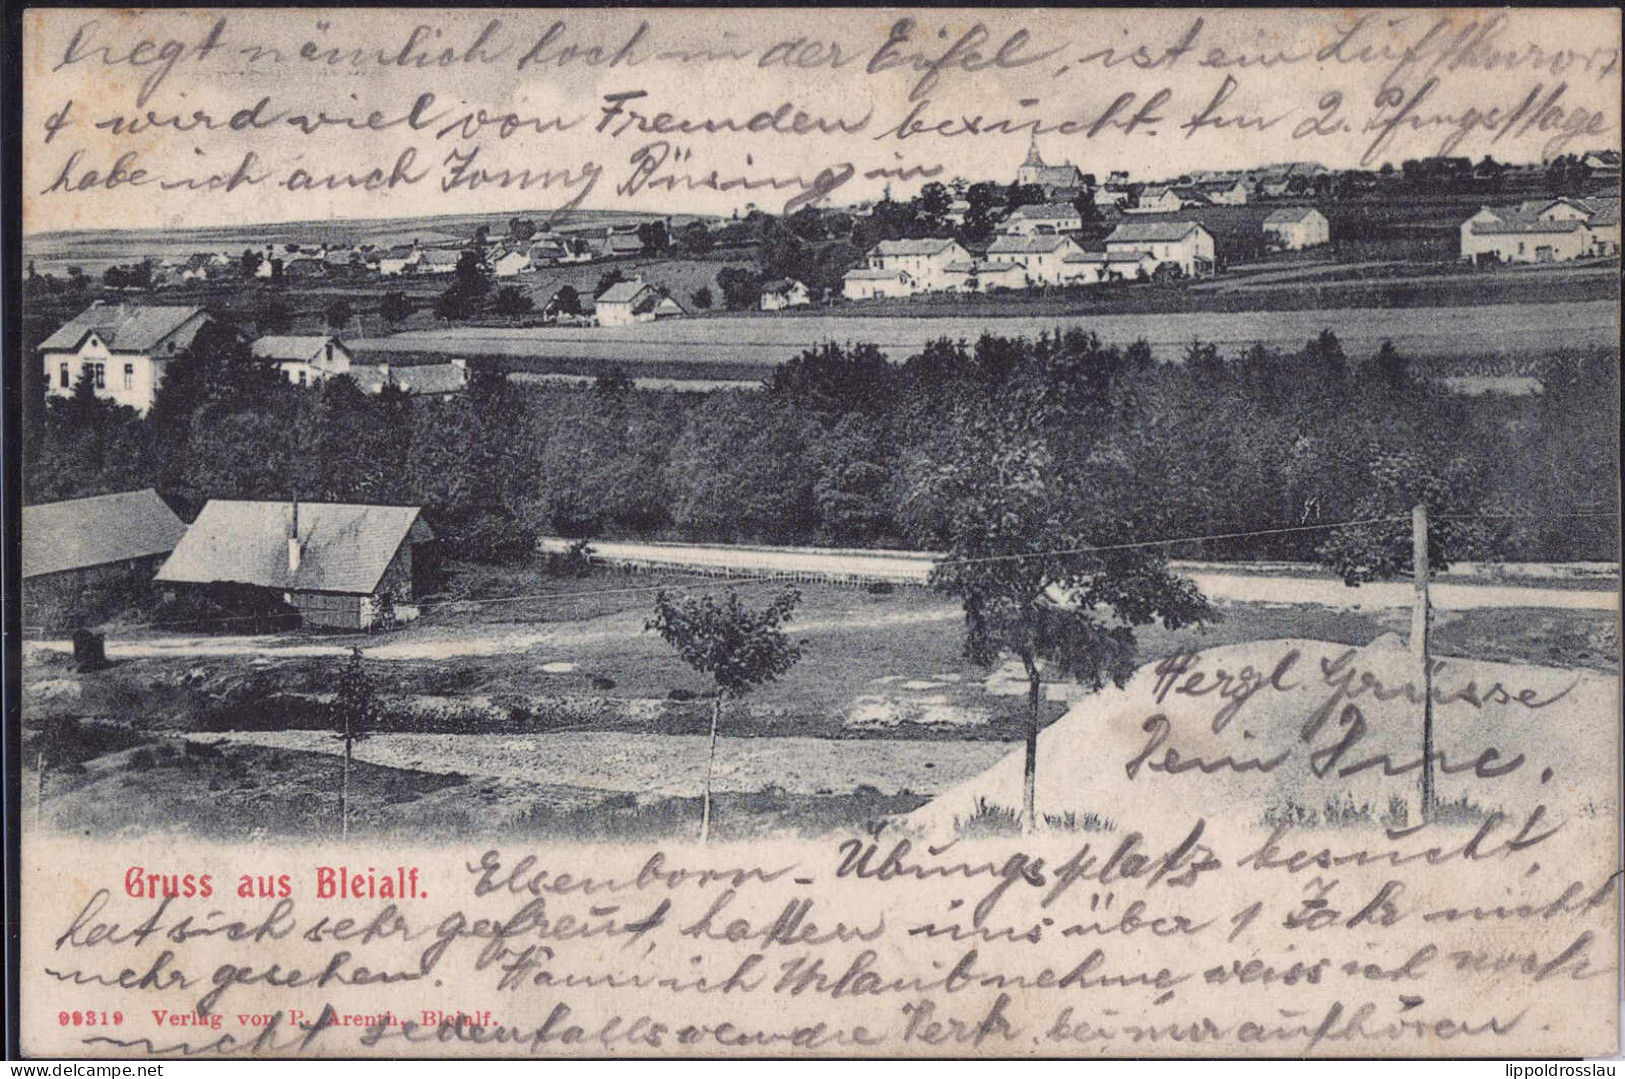 liegt nämlich hoch in der Eifel, ist ein Luftkurort
& wird viel von Fremden besucht. Am 2. Pfingsttage
habe ich auch Jonny Büsing in
Hergl. Grüsse
Dein
Gruss aus Bleialf.
Elsenborn - Übungsplatz besucht,
hat sich sehr gefreut, hatten uns über 1 Jahr nicht
mehr gesehen. Wann ich Urlaub nehme weiss ich noch
99319 Verlag von P. Arenth, Bleialf.
nicht jedenfalls wenn die Vertr. bei mir aufhören.
lippoldrosslau